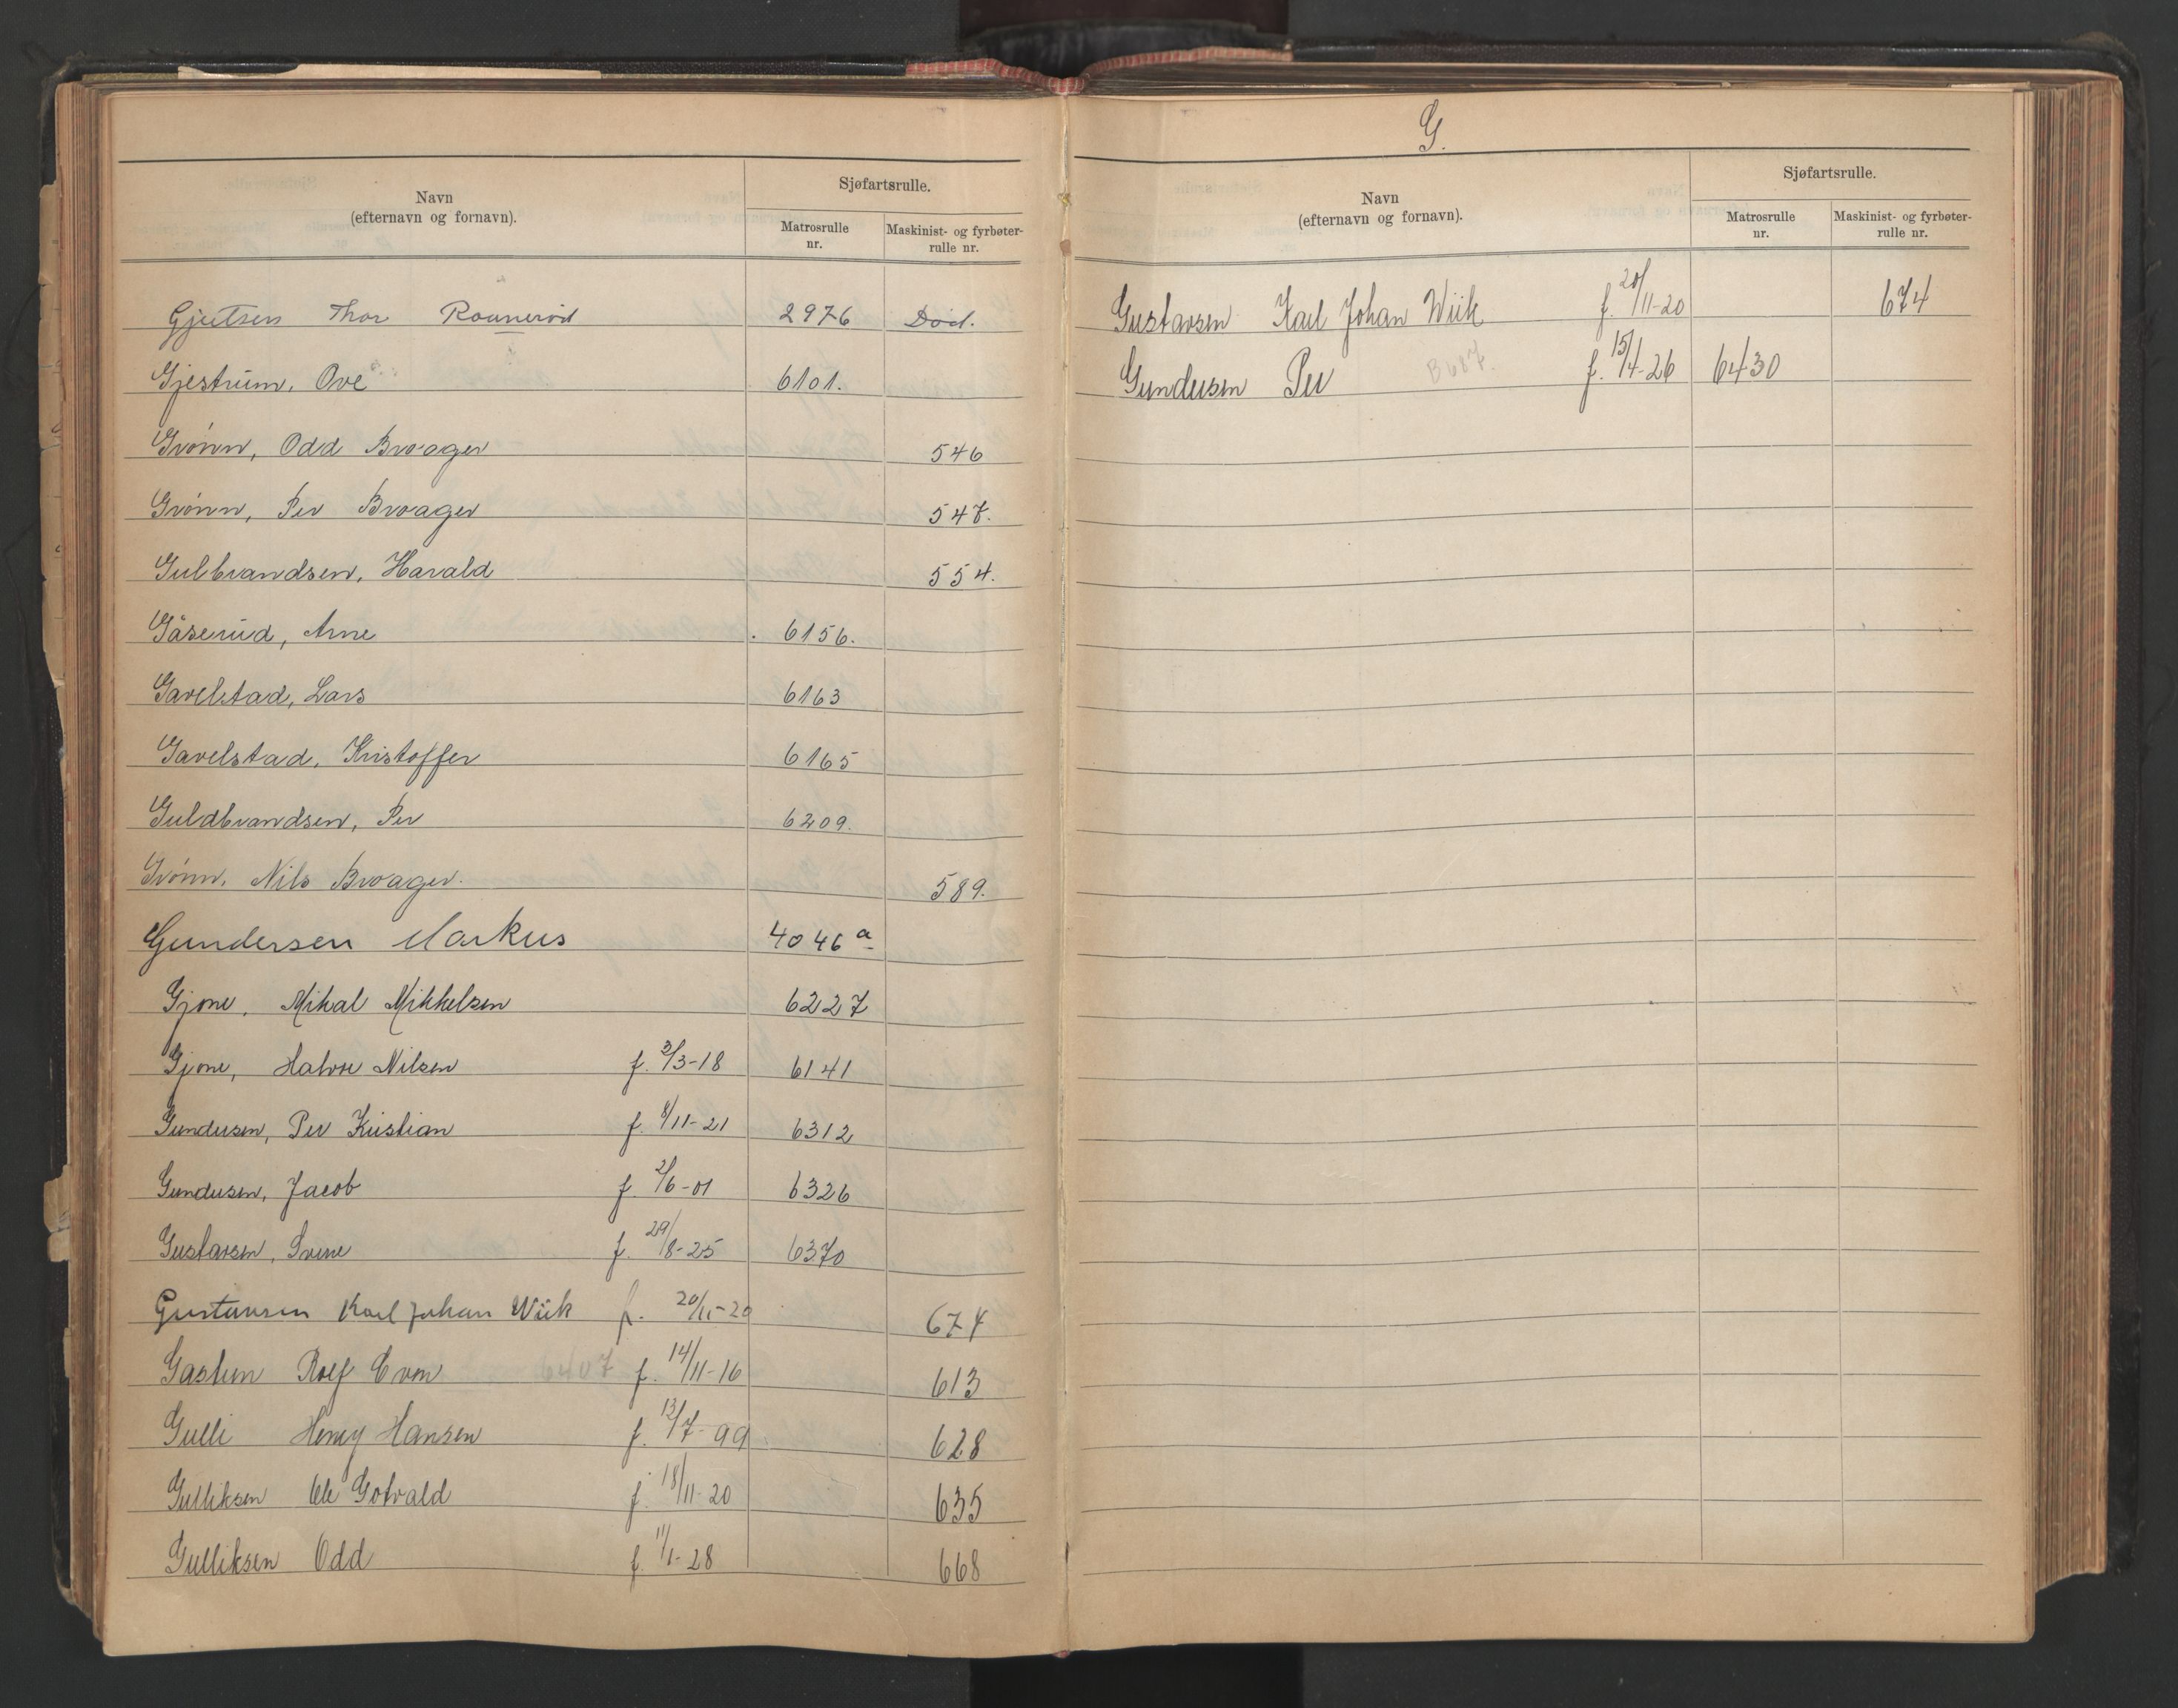 Navn
(efternavn og fornavn).
Sjøfartsrulle.
Matrosrulle
nr.
Maskinist- og fyrbøter-
rulle nr.
Gjertsen Thor 2976 Død.
Gjestrum, Ove 6101.
Grønn, Odd Broager 546
Grønn, Per Broager 547.
Gulbrandsen, Harald 554.
Gåserud, Arne 6156.
Gavelstad, Lars 6163
Gavelstad, Kristoffer 6165
Guldbrandsen, Per 6209.
Grønn, Nils Broager. 589.
Gundersen Markus 4046 a
Gjone, Mikal Mikkelsen 6227
Gjone, Halvor Nilsen f. 3/3-18 6141
Gundersen, Per Kristian f. 8/11-21 6312
Gundersen, Jacob f. 2/6-01 6326
Gustavsen, Svene f. 29/8-25 6370
Gustavsen Karl Johan Wiik f. 20/11-20 674
Rolf 6407 f. 14/11-16 613
Gulli Henry Hansen f. 13/7-99 628
Gulliksen Ole Gotvald f. 18/11-20 635
Gulliksen Odd f. 11/1-28 668
G.
Navn
(efternavn og fornavn).
Sjøfartsrulle.
Matrosrulle
nr.
Maskinist- og fyrbøter-
rulle nr.
Gustavsen Karl Johan Wiik f. 20/11-20 674
Gundersen Per f. 15/4-26 6430